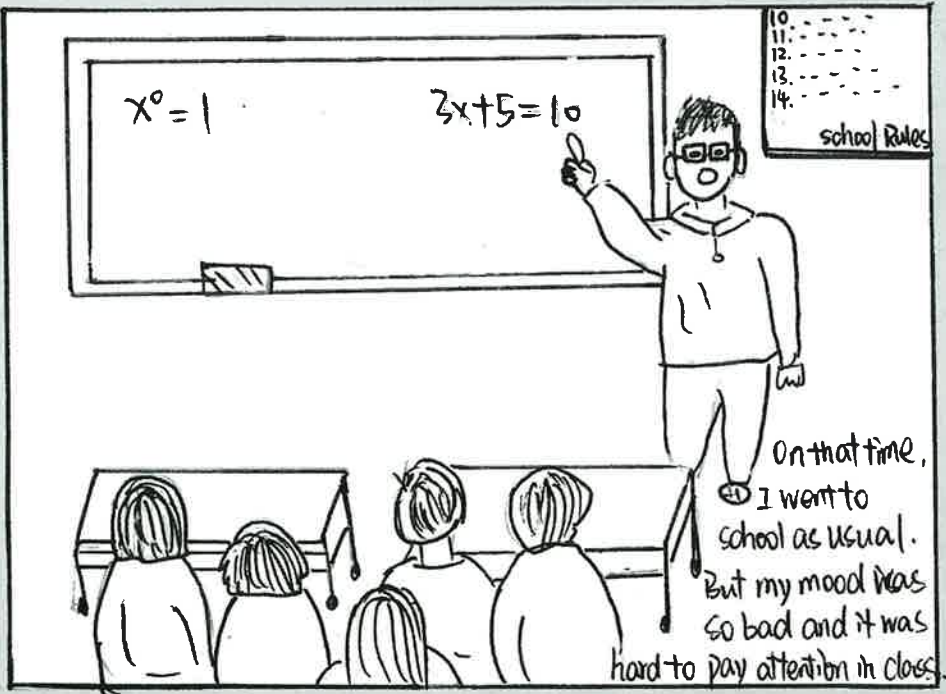 x⁰ = 1
3x+5=10
10. - - - -
11. - - - -
12. - - - -
13. - - - -
14. - - - - -
school Rules
On that time,
I went to
school as usual.
But my mood was
so bad and it was
hard to pay attention in class